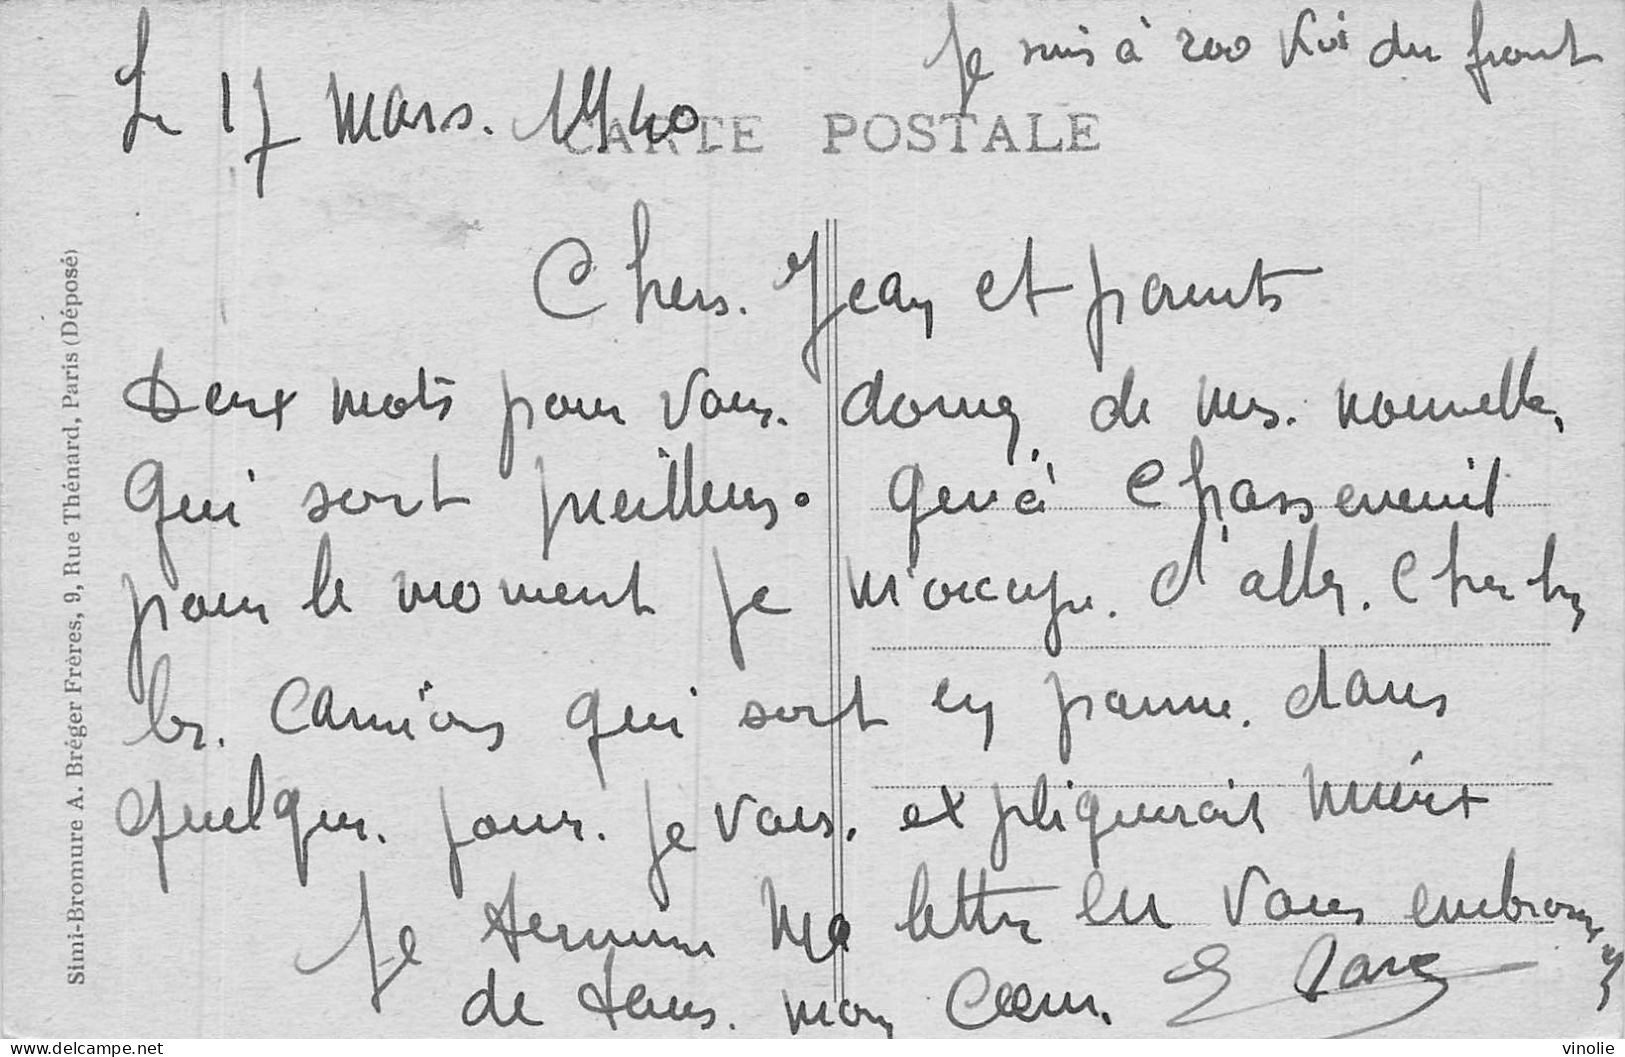 Je suis à 200 Km du front
Le 17 mars. 1940
CARTE POSTALE
Chers. Jean et parents
Deux mots pour vous. donner de mes. nouvelles,
qui sont meilleurs. qu'à Chasseneuil
pour le moment je m'occupe. d'aller. chercher
les. camions qui sont en panne. dans
quelques. jours. je vous. expliquerait mieux
Je termine ma lettre en vous embrassant
de tous. mon Cœur.
Simi-Bromure A. Bréger Frères, 9, Rue Thénard, Paris (Déposé)
delcampe.net
vinolie